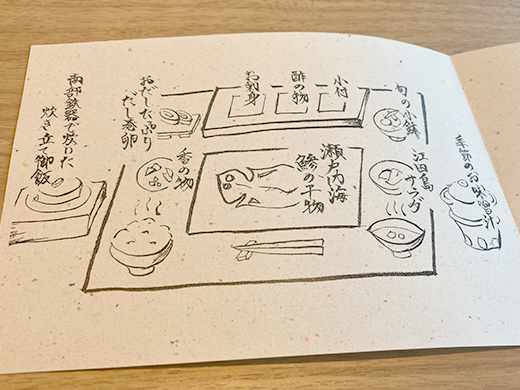 季節のお味噌汁
旬の小鉢
江田島
サラダ
小付
酢の物
お刺身
瀬戸内海
鯵の干物
おだしたっぷり
だし巻卵
香の物
南部鉄器で炊いた
炊き立て御飯